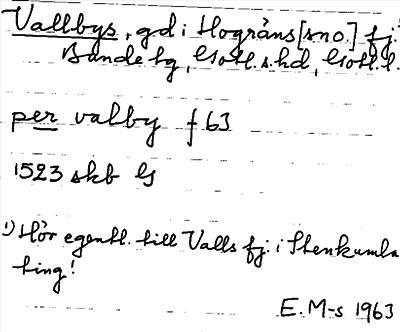 Vallbys, gd i Hogräns[sno.] fj.¹
Bande tg, Gotl. s. hd, Gotl. l.
per valby f 63
1523 skb G
1) Hör egentl. till Valls fj. i Stenkumla
ting!
E. M-s 1963